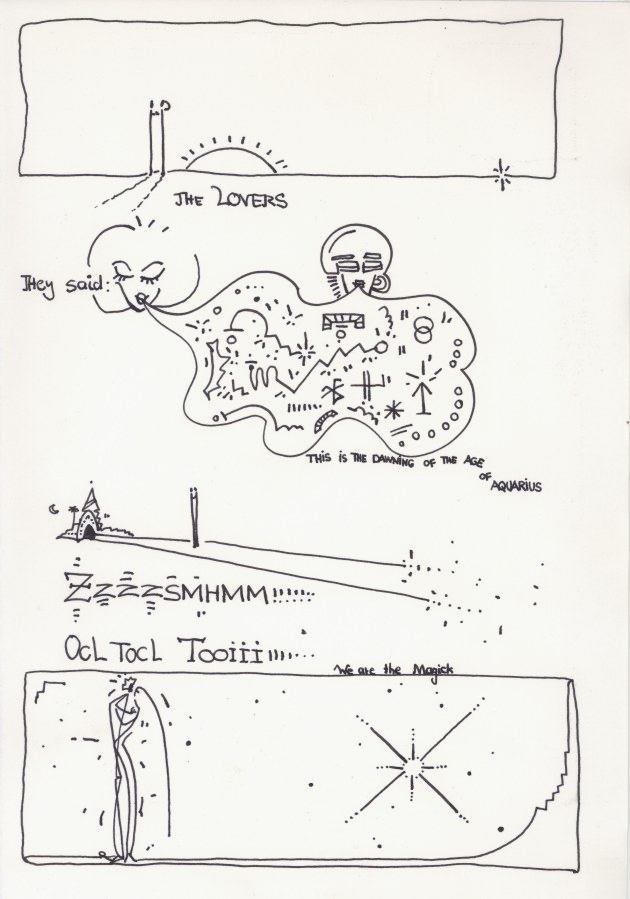 THE LOVERS
They said:
THIS IS THE DAWNING OF THE AGE
OF
AQUARIUS
ZZZZZSMHMM!!!!!!.....
OCL TOCL TOOiiiiii.....
We are the Magick